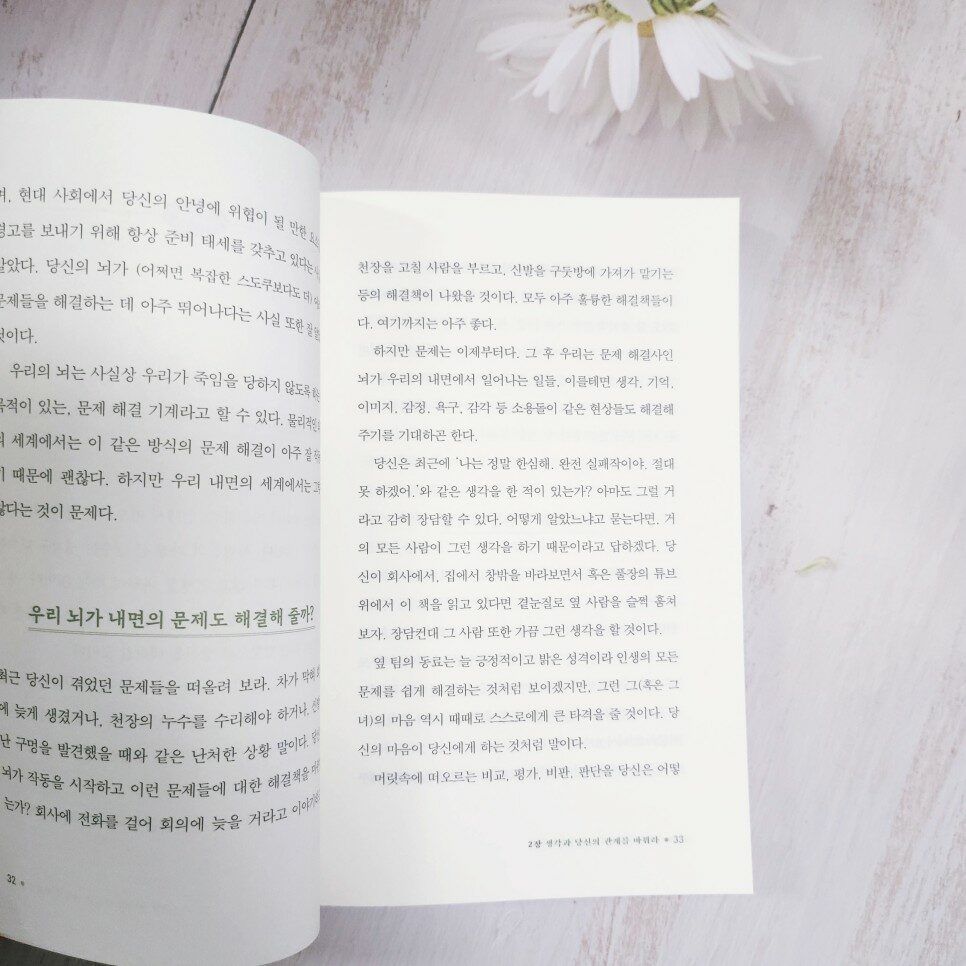 며, 현대 사회에서 당신의 안녕에 위협이 될 만한
경고를 보내기 위해 항상 준비 태세를 갖추고 있다는
알았다. 당신의 뇌가 (어쩌면 복잡한 스도쿠보다도 더)
문제들을 해결하는 데 아주 뛰어나다는 사실 또한 잘
것이다.
우리의 뇌는 사실상 우리가 죽임을 당하지 않도록 하는
목적이 있는, 문제 해결 기계라고 할 수 있다. 물리적인
의 세계에서는 이 같은 방식의 문제 해결이 아주 잘
기 때문에 괜찮다. 하지만 우리 내면의 세계에서는
않다는 것이 문제다.
우리 뇌가 내면의 문제도 해결해 줄까?
최근 당신이 겪었던 문제들을 떠올려 보라. 차가 막혀
에 늦게 생겼거나, 천장의 누수를 수리해야 하거나,
난 구멍을 발견했을 때와 같은 난처한 상황 말이다.
뇌가 작동을 시작하고 이런 문제들에 대한 해결책을
는가? 회사에 전화를 걸어 회의에 늦을 거라고
32 *
천장을 고칠 사람을 부르고, 신발을 구둣방에 가져가 맡기는
등의 해결책이 나왔을 것이다. 모두 아주 훌륭한 해결책들이
다. 여기까지는 아주 좋다.
하지만 문제는 이제부터다. 그 후 우리는 문제 해결사인
뇌가 우리의 내면에서 일어나는 일들, 이를테면 생각, 기억,
이미지, 감정, 욕구, 감각 등 소용돌이 같은 현상들도 해결해
주기를 기대하곤 한다.
당신은 최근에 '나는 정말 한심해. 완전 실패작이야. 절대
못 하겠어.'와 같은 생각을 한 적이 있는가? 아마도 그럴 거
라고 감히 장담할 수 있다. 어떻게 알았느냐고 묻는다면, 거
의 모든 사람이 그런 생각을 하기 때문이라고 답하겠다. 당
신이 회사에서, 집에서 창밖을 바라보면서 혹은 풀장의 튜브
위에서 이 책을 읽고 있다면 곁눈질로 옆 사람을 슬쩍 훔쳐
보자. 장담컨대 그 사람 또한 가끔 그런 생각을 할 것이다.
옆 팀의 동료는 늘 긍정적이고 밝은 성격이라 인생의 모든
문제를 쉽게 해결하는 것처럼 보이겠지만, 그런 그(혹은 그
녀)의 마음 역시 때때로 스스로에게 큰 타격을 줄 것이다. 당
신의 마음이 당신에게 하는 것처럼 말이다.
머릿속에 떠오르는 비교, 평가, 비판, 판단을 당신은 어떻
2장 생각과 당신의 관계를 바꿔라 * 33